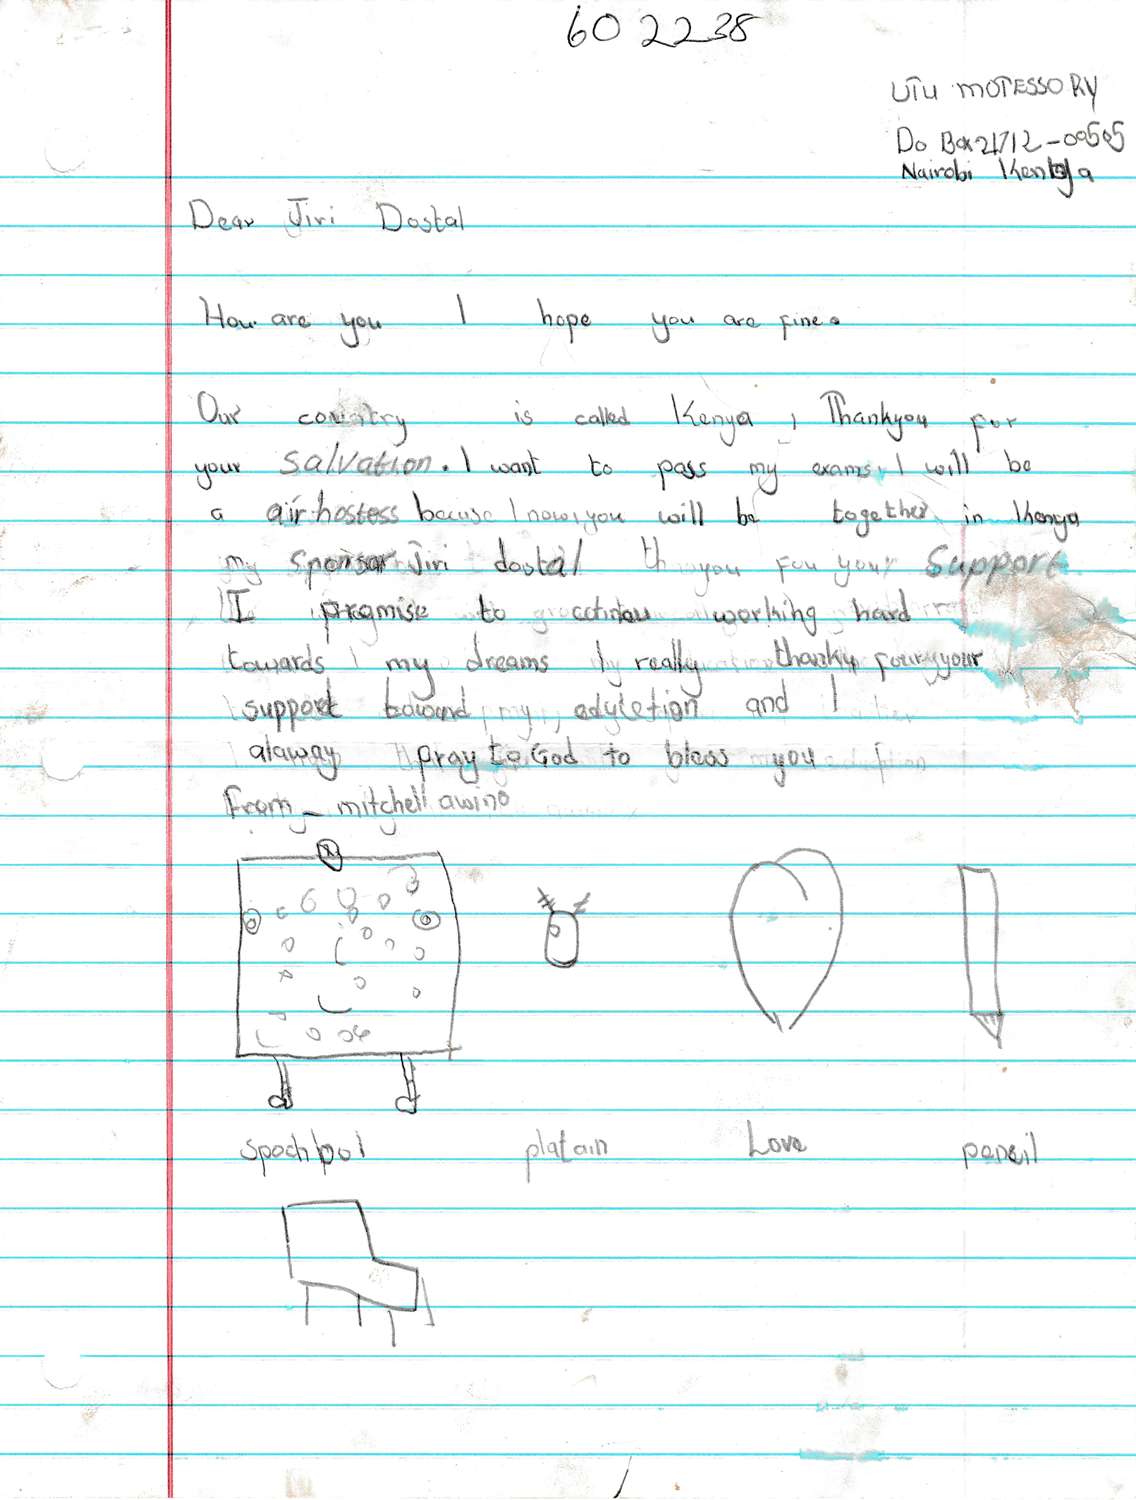 602238
UTU MOTESSORY
Do Box 21712-00505
Nairobi Kenya
Dear Jiri Dostal
How are you I hope you are fine.
Our country is called Kenya, Thankyou for
your salvation. I want to pass my exams, I will be
a air hostess becuse I now, you will be together in Kenya
my sponsor Jiri dostal you for your Support
I promise to working hard
towards my dreams I really thanky four your
support toward my and I
alaway pray to God to bless you
From - mitchell awino
spoch bol platain Love pencil